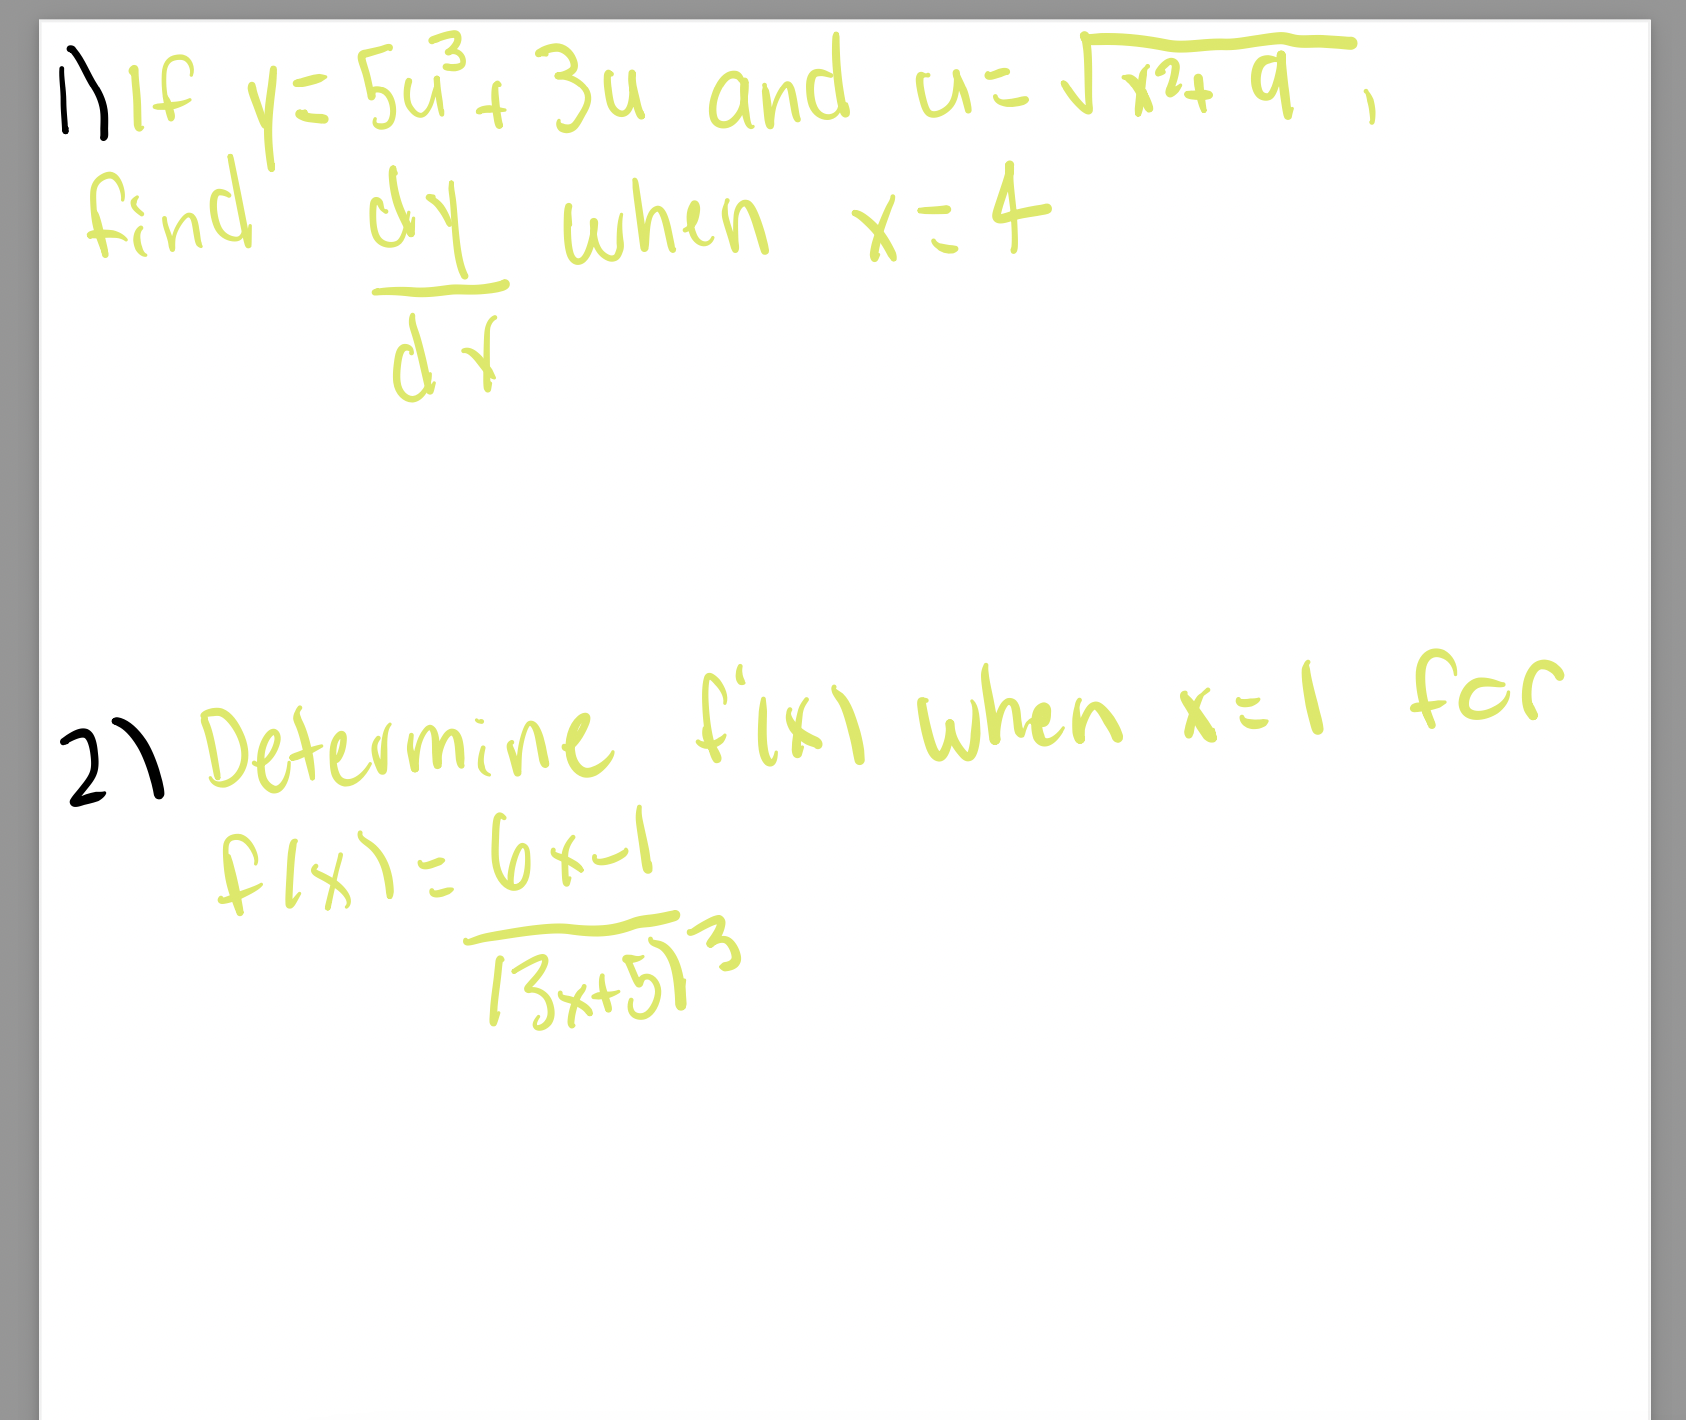 1) If y = 5u³ + 3u and u = √(x² + 9),
find dy/dx when x = 4
2) Determine f'(x) when x = 1 for
f(x) = (6x-1)/(3x+5)³